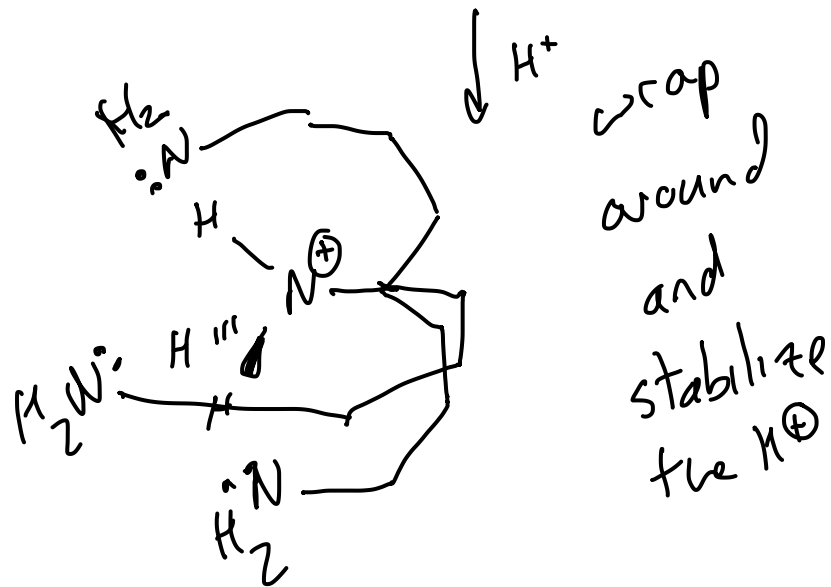 H⁺
wrap
around
and
stabilize
the H⊕
H₂
:N
H
N⊕
H
H₂N:
H
:N
H₂